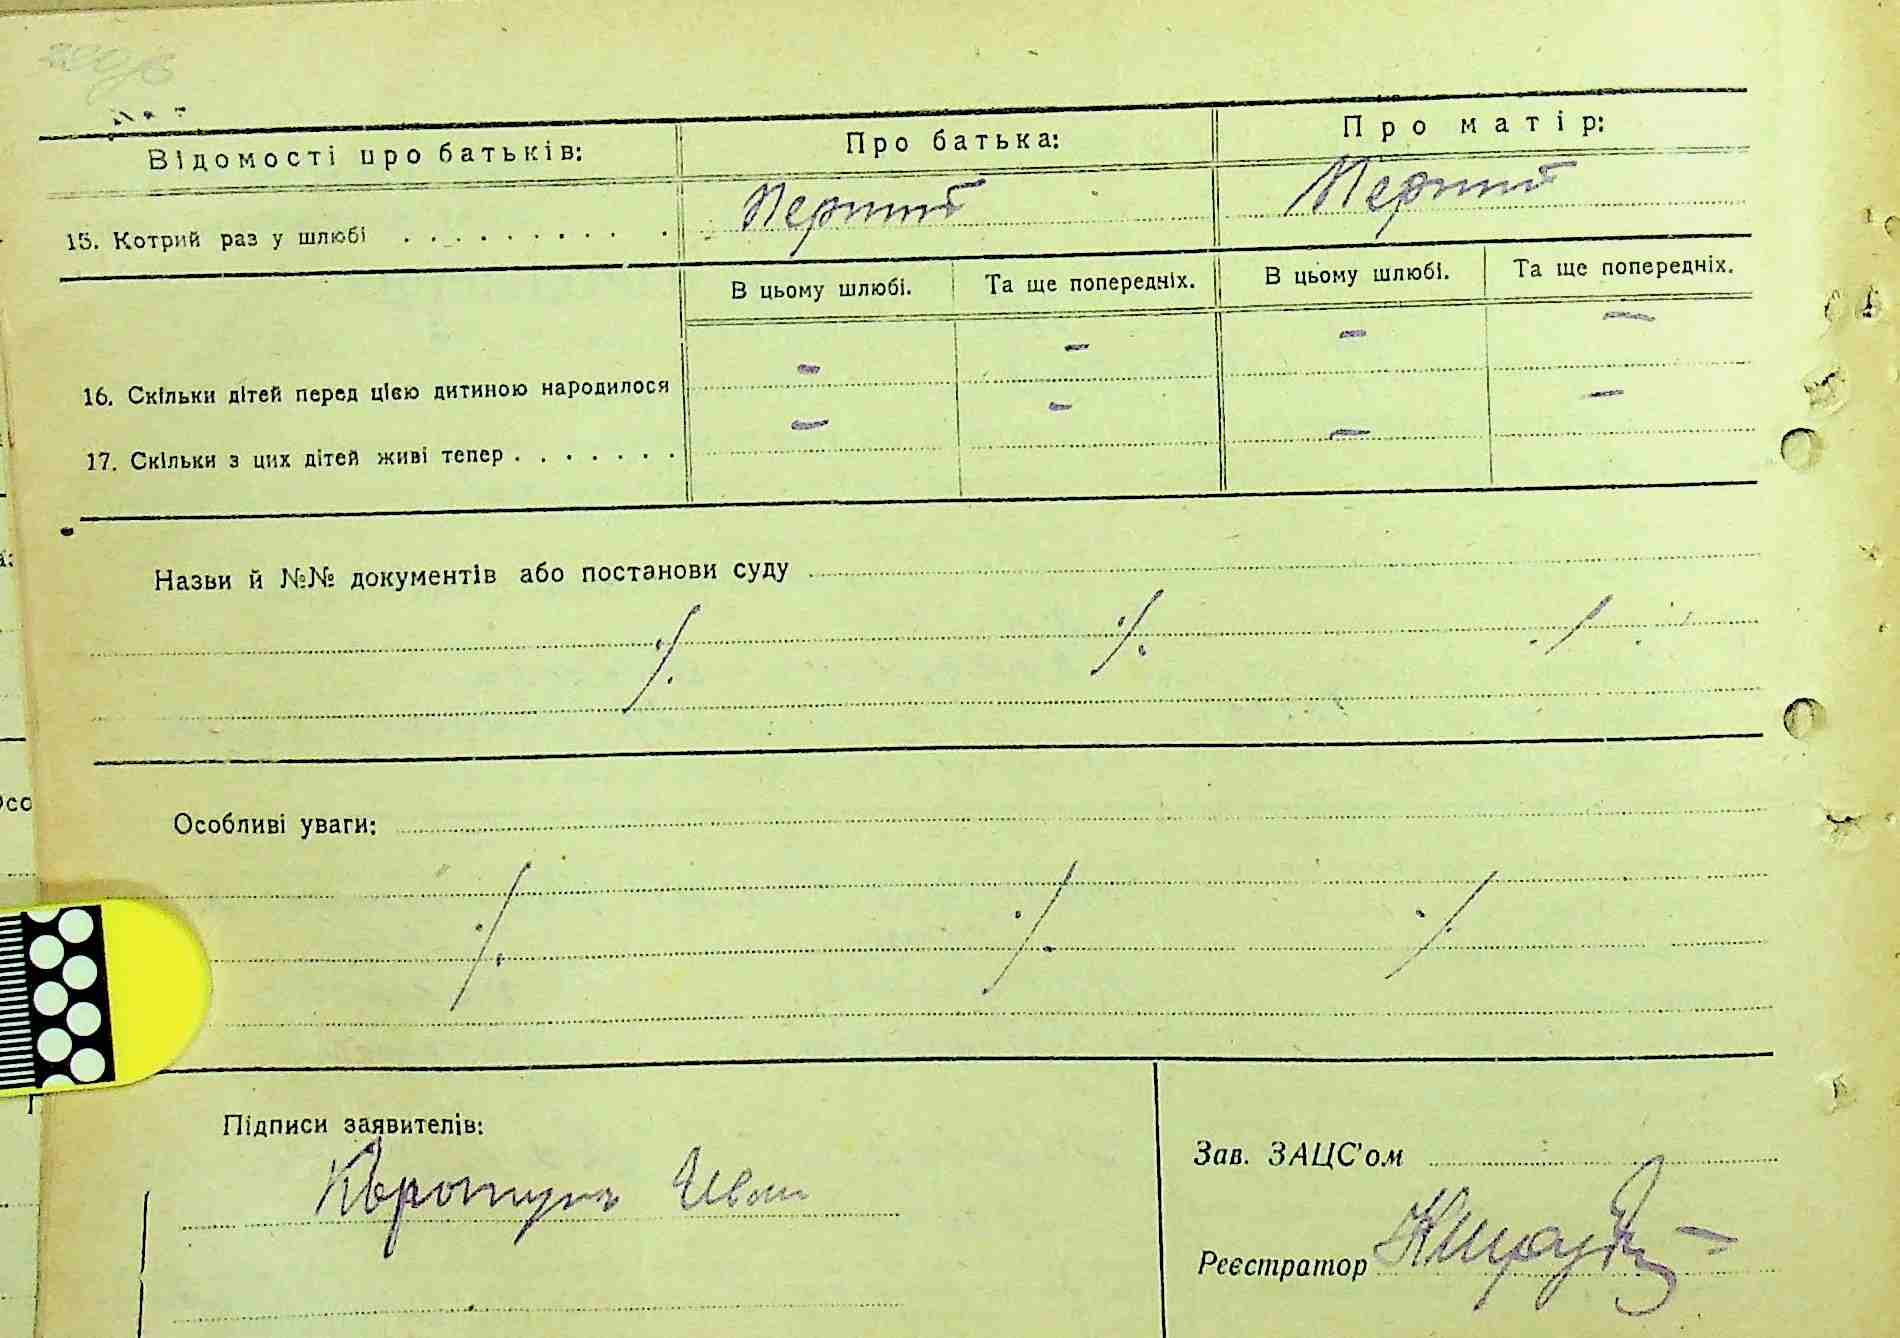 Відомості про батьків: Про батька: Про матір:
15. Котрий раз у шлюбі . . . . . . . . . . Перший Перший
В цьому шлюбі. Та ще попередніх. В цьому шлюбі. Та ще попередніх.
16. Скільки дітей перед цією дитиною народилося – – – –
17. Скільки з цих дітей живі тепер . . . . . . . – – – –
Назви й №№ документів або постанови суду
٪ ٪ ٪
Особливі уваги:
٪ ٪ ٪
Підписи заявителів:
Зав. ЗАЦС'ом
Іван
Реєстратор